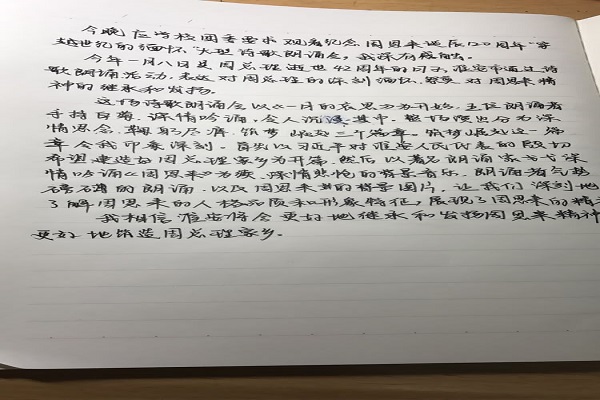 今晚应学校团委要求观看纪念周恩来诞辰120周年"穿
越世纪的缅怀"大型诗歌朗诵会,我深有感触。
今年一月八日是周总理逝世42周年的日子,淮安市通过诗
歌朗诵活动,表达对周总理的深刻缅怀,以及对周恩来精
神的继承和发扬。
这场诗歌朗诵会以《一月的哀思》为开始,五位朗诵者
手持白菊,深情吟诵,令人沉浸其中。整场演出分为深
情思念、鞠躬尽瘁、筑梦崛起三个篇章。筑梦崛起这一篇
章令我印象深刻,首先以习近平对淮安人民代表的殷切
希望建造好周总理家乡为开篇,然后以著名朗诵家
情吟诵《周恩来》为续,深情悲怆的背景音乐,朗诵者气势
磅礴的朗诵,以及周恩来的背景图片,让我们深刻地
了解周恩来的人格品质和形象特征,展现了周恩来的精神
我相信淮安将会更好地继承和发扬周恩来精神
更好地铸造周总理家乡。